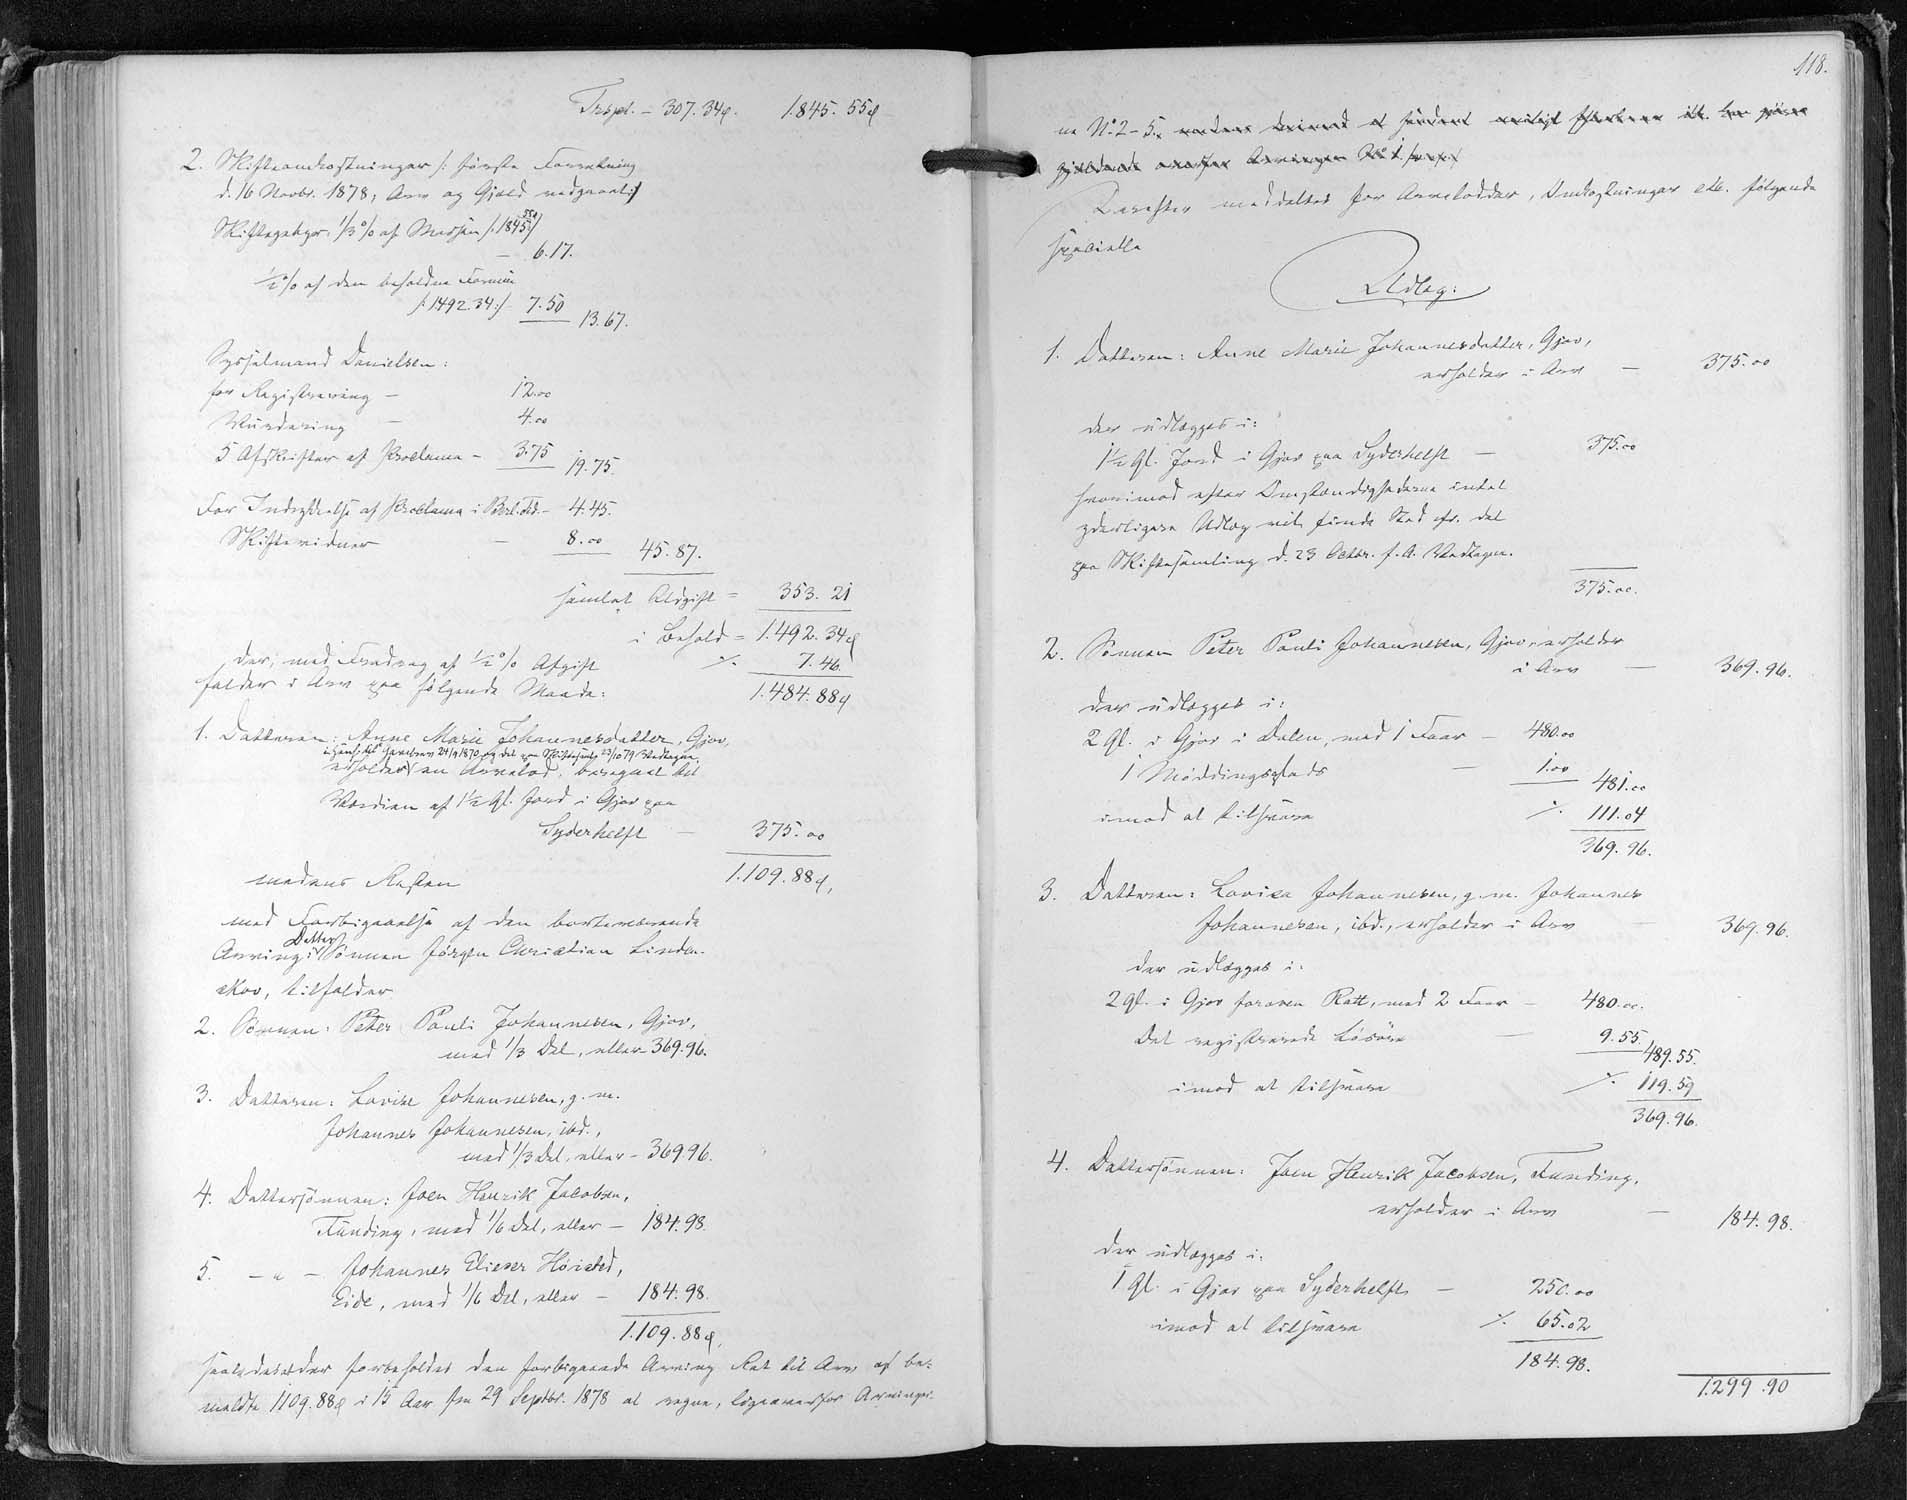 Trspt. – 307.34ø. 1845.55ø
2. Skifteomkostninger /: første Forretning
d. 16 Novbr. 1878, Arv og Gjæld vedgaaet :/
Skiftegebyr. 1/3 % af Massen /: 1845 55ø :/
– 6.17.
½ % af den beholdne Formue
/: 1492.34 :/ – 7.50 13.67.
Sysselmand Danielsen:
for Registrering – 12.00
Vurdering – 4.00
5 Afskrifter af Proclama – 3.75 19.75.
For Indrykkelse af Proclama i Berl. Tid. – 4.45.
Skiftevidner – 8.00 45.87.
samlet Udgift = 353.21
i Behold = 1.492.34ø
der, med Fradrag af ½ % Afgift ./. 7.46.
falder i Arv paa følgende Maade: 1.484.88ø
1. Datteren: Anne Marie Johannesdatter, Gjov,
i Henh. til Gavebrev 24/9 1870 og det paa Skiftesamlg 23/10 79 Vedtagne,
erholder en Arvelod, beregnet til
Værdien af 1½ Gl. Jord i Gjov paa
Syderhelft – 375.00
medens Resten 1.109.88ø,
med Forbigaaelse af den bortværende
Arving: Datter Sønnen Jørgen Christian Linden-
skov, tilfalder
2. Sønnen: Peter Pauli Johannesen, Gjov,
med 1/3 Del, eller 369.96.
3. Datteren: Lovise Johannesen, g. m.
Johannes Johannesen, ibd.,
med 1/3 Del, eller – 369.96.
4. Dattersønnen: Joen Henrik Jacobsen,
Funding, med 1/6 Del, eller – 184.98.
5. – " – Johannes Elieser Høisted,
Eide, med 1/6 Del, eller – 184.98.
1.109.88ø,
saaledes at der forbeholdes den forbigaaede Arving Ret til Arv af be-
meldte 1109.88ø i 15 Aar fra 29 Septbr. 1878 at regne, ligeoverfor Arvinger-
118.
ne No. 2 – 5,
Derefter meddeltes for Arvelodder, Omkostninger etc. følgende
specielle
Udlæg:
1. Datteren: Anne Marie Johannesdatter, Gjov,
erholder i Arv – 375.00
der udlægges i:
1½ Gl. Jord i Gjov paa Syderhelft – 375.00
hvorimod efter Omstændighederne intet
yderligere Udlæg vil finde Sted cfr. det
paa Skiftesamling d. 23 Octbr. f. A. Vedtagne.
375.00.
2. Sønnen Peter Pauli Johannesen, Gjov, erholder
i Arv – 369.96.
der udlægges i:
2 Gl. i Gjov i Dalen, med 1 Faar – 480.00
1 Møddingsplads – 1.00 481.00
imod at tilsvare ./. 111.04
369.96.
3. Datteren: Lovisa Johannesen, g. m. Johannes
Johannesen, ibd., erholder i Arv – 369.96.
der udlægges i:
2 Gl. i Gjov foroven Rætt, med 2 Faar – 480.00.
Det registrerede Løsøre – 9.55. 489.55.
imod at tilsvare ./. 119.59
369.96.
4. Dattersønnen: Joen Henrik Jacobsen, Funding,
erholder i Arv – 184.98.
der udlægges i:
1 Gl. i Gjov paa Syderhelft – 250.00
imod at tilsvare ./. 65.02
184.98.
1.299.90